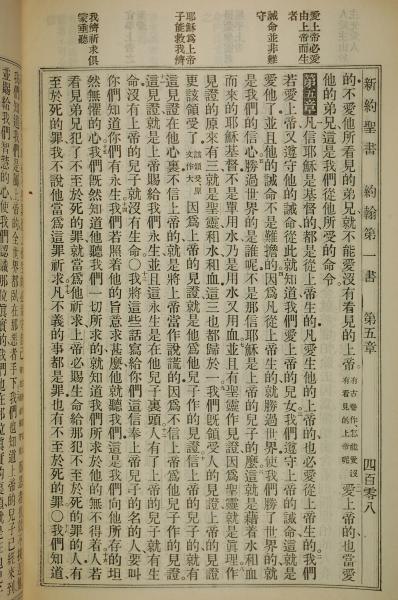 新約聖書　約翰第一書　第五章　四百零八
愛上帝必愛
由上帝而生
者
守
誡命並非難
耶穌爲上帝
子能救我儕
我儕祈求俱
蒙垂聽
的不愛他所看見的弟兄就不能愛沒有看見的上帝有古卷作怎能愛沒有看見的上帝呢愛上帝的也當愛
他的弟兄這是我們從他所受的命令
第五章凡信耶穌是基督的都是從上帝生的凡愛生他的上帝的也必愛從上帝生的我們
若愛上帝又遵守他的誡命從此就知道我們愛上帝的兒女我們遵守上帝的誡命這就是
愛他了並且他的誡命不是難擔的因爲凡從上帝生的就勝過世界使我們勝了世界的就
是我們的信心勝過世界的是誰呢不是那信耶穌是上帝的兒子的麼這就是藉着水和血
而來的耶穌基督不是單用水乃是用水又用血並且有聖靈作見證因爲聖靈就是眞理作
見證的原來有三就是聖靈和水和血這三也都歸於一我們旣領受人的見證上帝的見證
更該領受了因爲上帝的見證就是他爲他兒子作的見證信上帝的兒子的就有
這見證在他心裏不信上帝的就是將上帝當作說謊的因爲不信上帝爲他兒子作的見證
這見證就是上帝賜給我們永生並且這永生是在他兒子裏頭人有了上帝的兒子就有生
命沒有上帝的兒子就沒有生命○我將這些話寫給你們這信奉上帝兒子的名的人要叫
你們知道你們有永生我們若照着他的旨意求甚麼他就聽我們這是我們向他所存的坦
然無懼的心我們旣然知道他聽我們一切所求的就知道我們所求於他的無不得着人若
看見弟兄犯了不至於死的罪就當爲他祈求上帝必賜生命給那犯不至於死的罪的人有
至於死的罪我不說他當爲這罪祈求凡不義的事都是罪也有不至於死的罪○我們知道